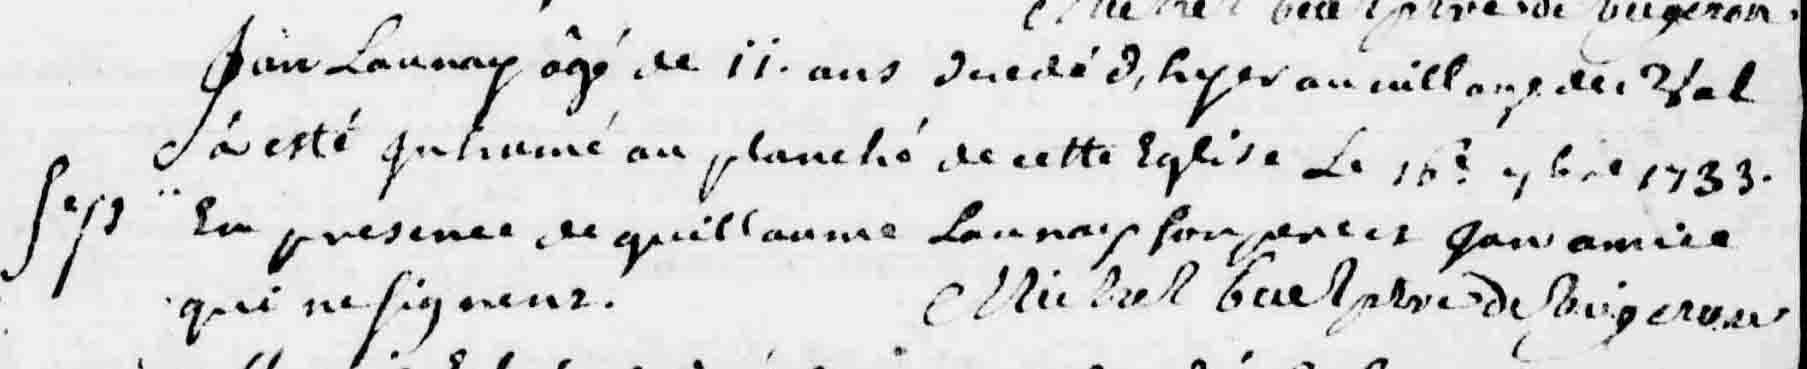 Michel buet ptre de
Jan Launay âgé de 11. ans decedé d'hyer au village du Val
a esté inhumé au planché de cette Eglise Le 16e 7bre 1733.
Sep En presence de guillaume Launay son pere et Jan amice
qui ne signent. Michel buet ptre de